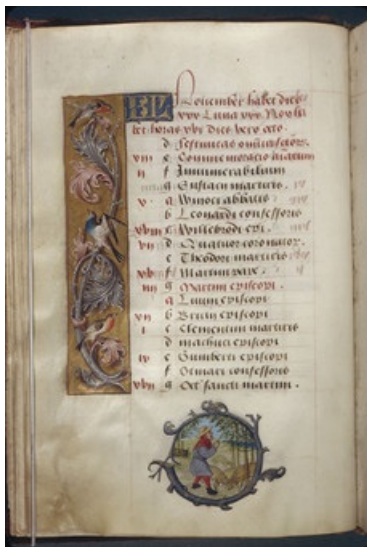 KL Nouember habet dies
xxx Luna xxx Nox ha
bet horas xvi dies vero octo
d Festiuitas omniu sctor.
xiii e Commemoracio aiarum
ii f Innumerabilium
g Eustacii martiris.
x a Winoci abbatis
b Leonardi confessoris
xviii c Willebrodi epi.
vii d Quatuor coronator.
e Theodori martiris
xv f Martini pape.
iiii g Martini episcopi
a Liuini episcopi
xii b Bricii episcopi
i c Clementini martiris
d machuti episcopi
ix e Gumberti episcopi
f Otmari confessoris
xvii g Oct sancti martini.